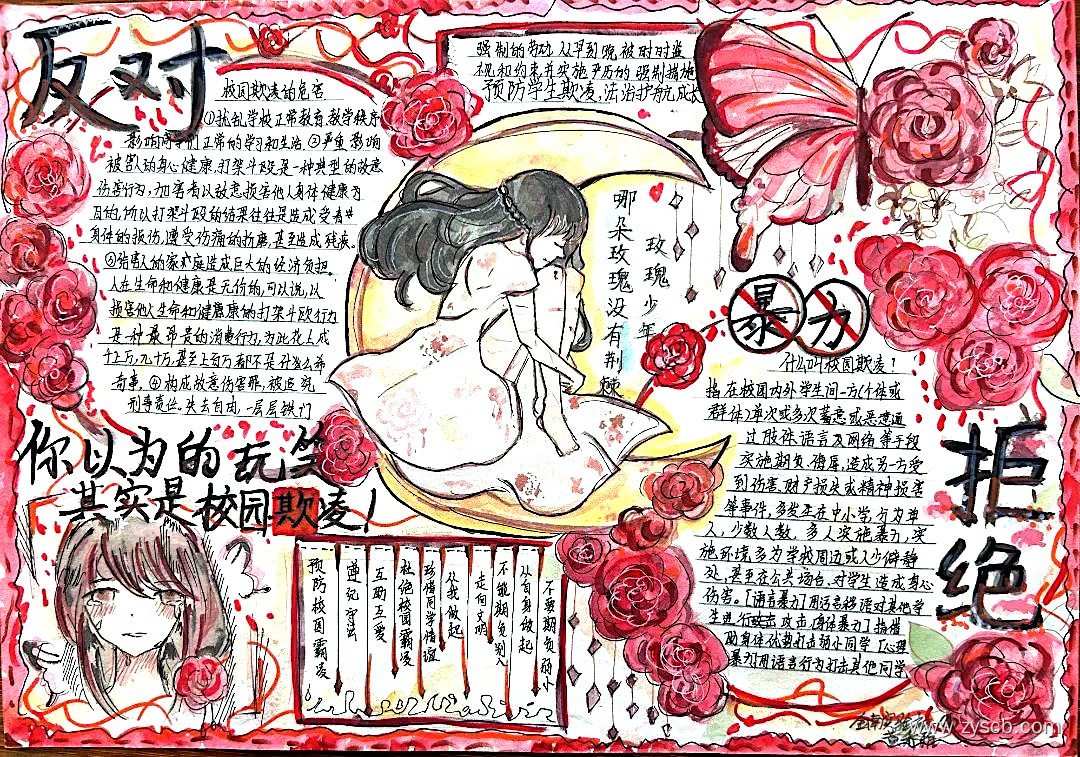 反对
校园欺凌的危害
①扰乱学校正常教育、教学秩序
影响同学们正常的学习和生活。②严重影响
被害人的身心健康,打架斗殴是一种典型的故意
伤害行为,加害者以故意损害他人身体健康为
目的,所以打架斗殴的结果往往是造成受害
身体的损伤,遭受伤痛的折磨,甚至造成残疾。
③给害人的家庭造成巨大的经济负担。
人在生命和健康是无价的,可以说,以
损害他人生命和健康的打架斗殴行为
是一种最昂贵的消费行为,为此花上成
千上万,几十万甚至上百万都不是什么希
奇事。④构成故意伤害罪,被追究
刑事责任。失去自由,一层层铁门
你以为的玩笑
其实是校园欺凌!
强制的劳动,从早到晚被时时监
视和约束并实施严厉的强制措施
预防学生欺凌,法治护航成长
哪朵玫瑰没有荆棘
玫瑰少年
暴力
什么叫校园欺凌?
指在校园内外学生间一方(个体或
群体)单次或多次蓄意或恶意通
过肢体、语言及网络等手段
实施欺负、侮辱,造成另一方受
到伤害、财产损失或精神损害
等事件,多发生在中小学,分为单
人,少数人数,多人实施暴力,实
施环境多为学校周边或人少僻静
处,甚至在公共场合,对学生造成身心
伤害。「语言暴力」用语言辱语对其他学
生进行攻击「身体暴力」指借
助身体优势打击弱小同学「心理
暴力」用语言行为打击其他同学
拒绝
不要欺负弱小
从自身做起
不能欺负别人
走向文明
从我做起
珍惜同学情谊
杜绝校园霸凌
互助互爱
遵纪守法
预防校园霸凌
www.zyscb.com